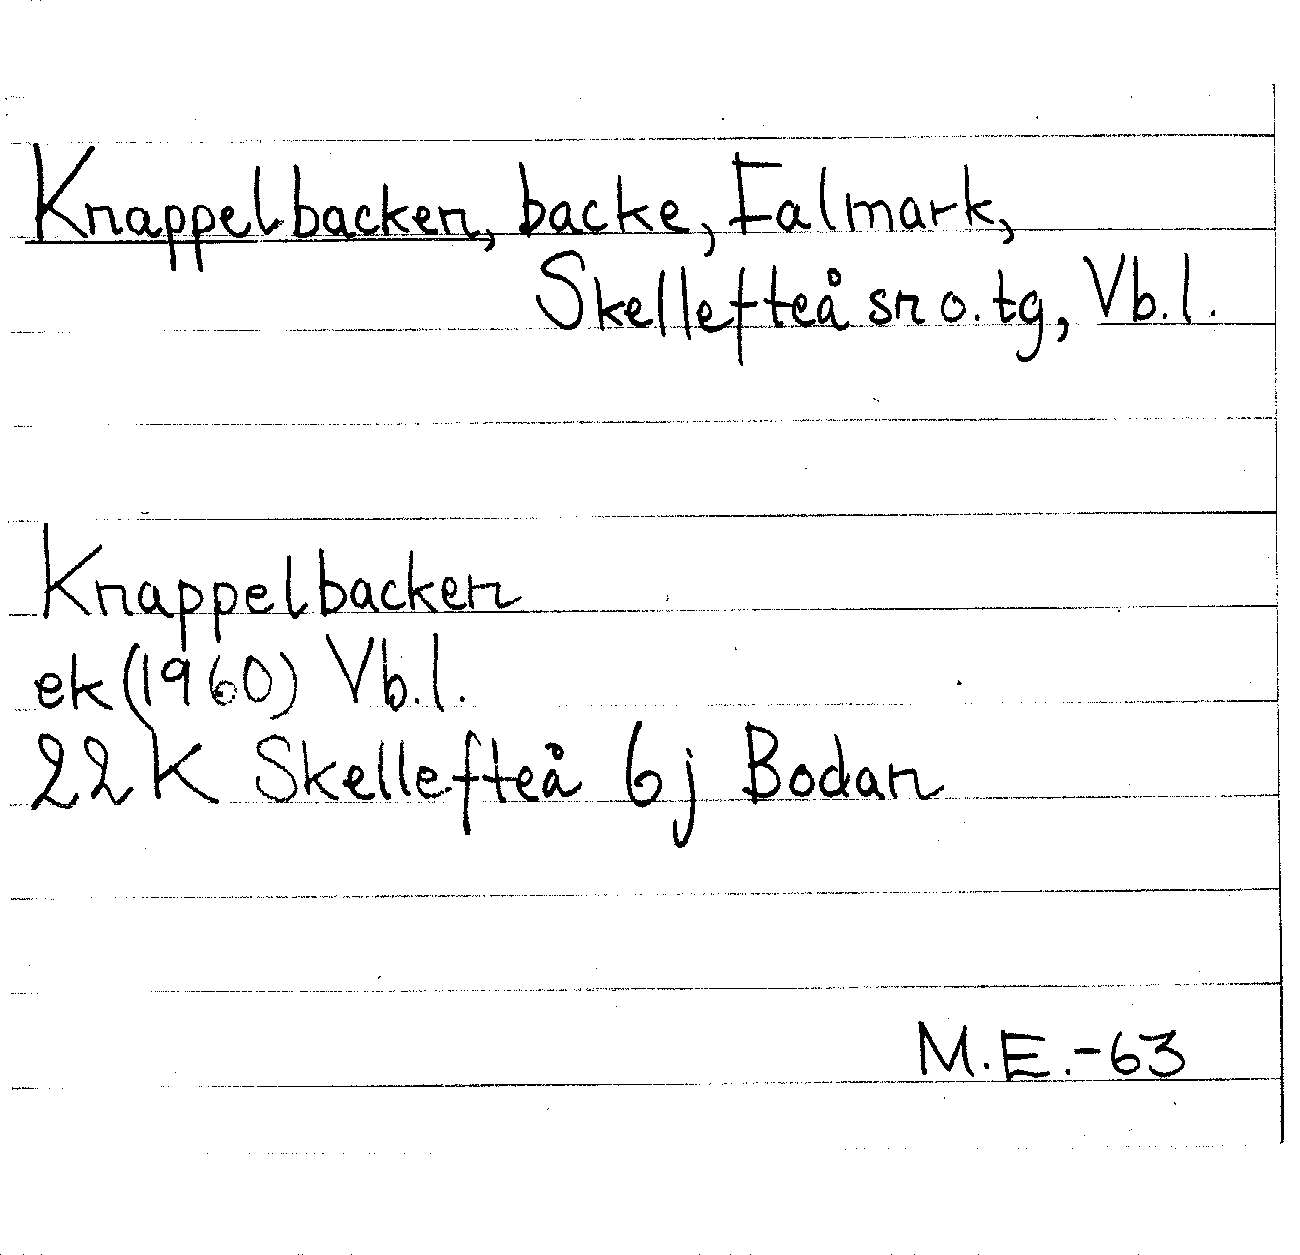 Knappelbacken, backe, Falmark,
Skellefteå sn o. tg, Vb.l.
Knappelbacken
ek (1960) Vb.l.
22K Skellefteå 6j Bodan
M.E.-63